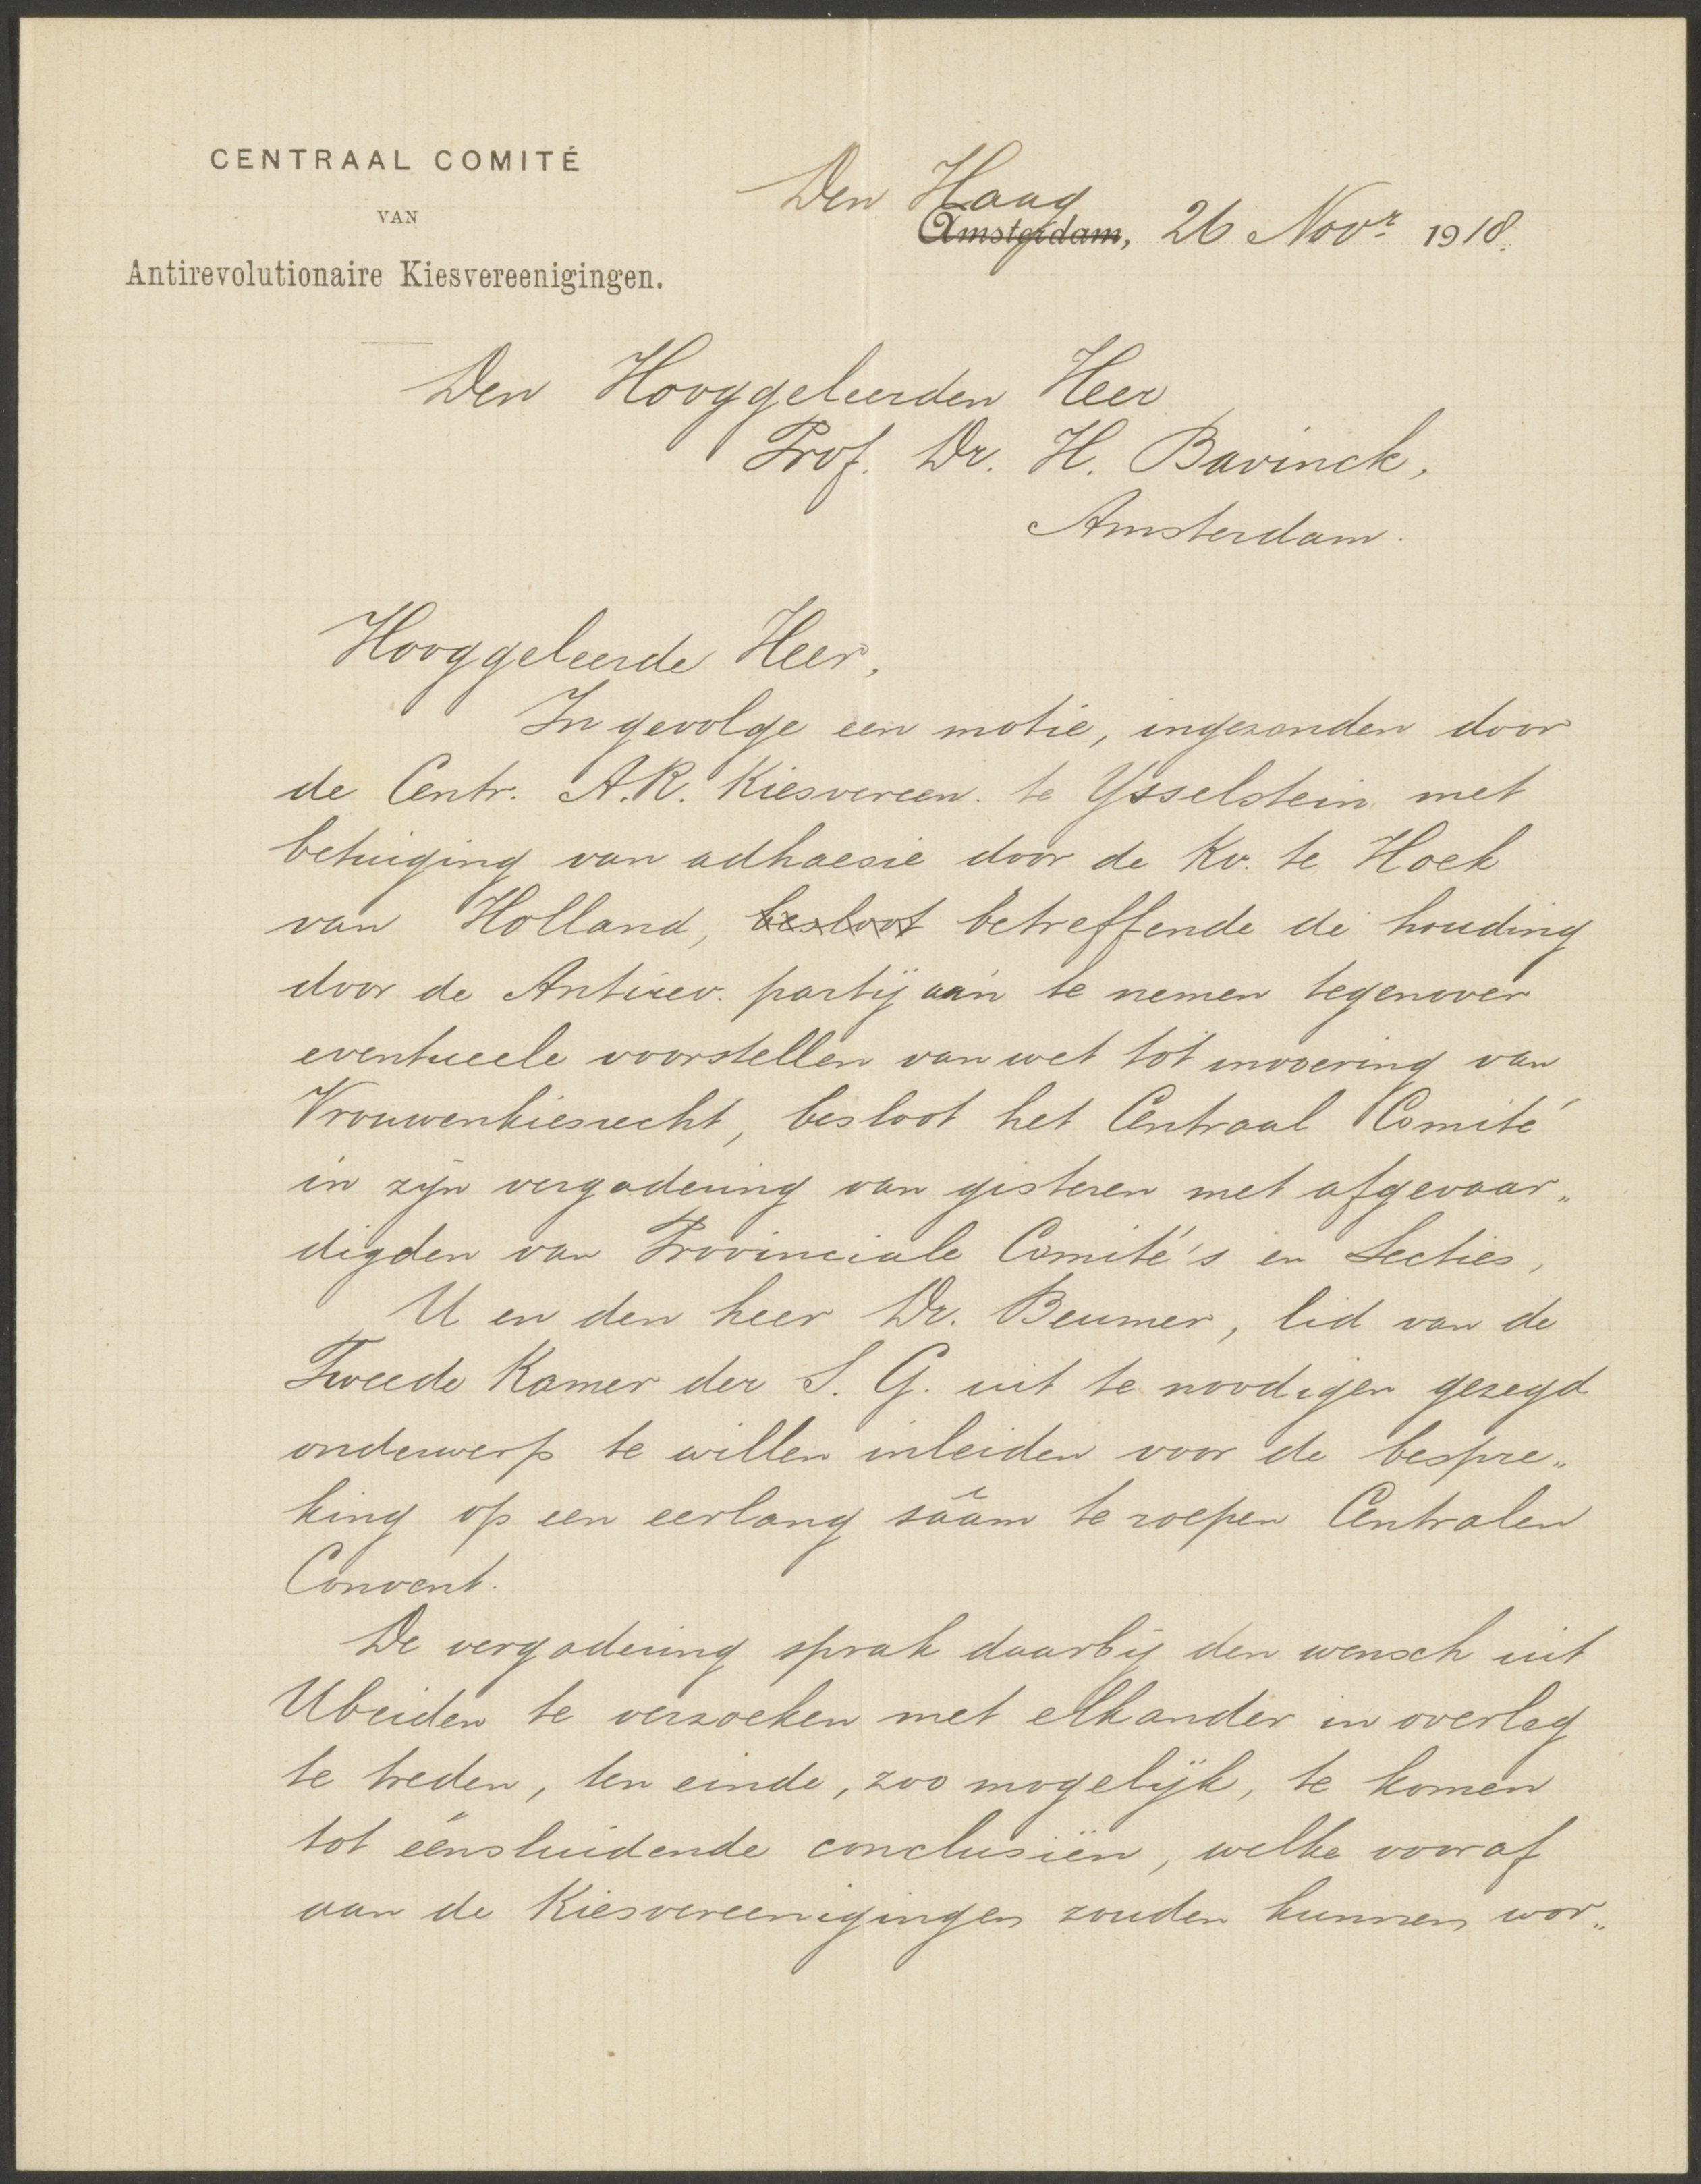 CENTRAAL COMITÉ
VAN
Antirevolutionaire Kiesvereenigingen.
Den Haag
Amsterdam, 26 Novr 1918.
Den Hooggeleerden Heer
Prof. Dr. H. Bavinck,
Amsterdam.
Hooggeleerde Heer,
In gevolge een motie, ingezonden door
de Centr. A.R. Kiesvereen. te Ysselstein met
betuiging van adhaesie door de Kv. te Hoek
van Holland, besloot betreffende de houding
door de Antirev. partij aan te nemen tegenover
eventueele voorstellen van wet tot invoering van
Vrouwenkiesrecht, besloot het Centraal Comité
in zijn vergadering van gisteren met afgevaar„
digden van Provinciale Comité's en Secties,
U en den heer Dr. Beumer, lid van de
Tweede Kamer der S. G. uit te noodigen gezegd
onderwerp te willen inleiden voor de bespre„
king op een eerlang sâam te roepen Centralen
Convent.
De vergadering sprak daarbij den wensch uit
U beiden te verzoeken met elkander in overleg
te treden, ten einde, zoo mogelijk, te komen
tot éénsluidende conclusiën, welke vooraf
aan de Kiesvereenigingen zouden kunnen wor„